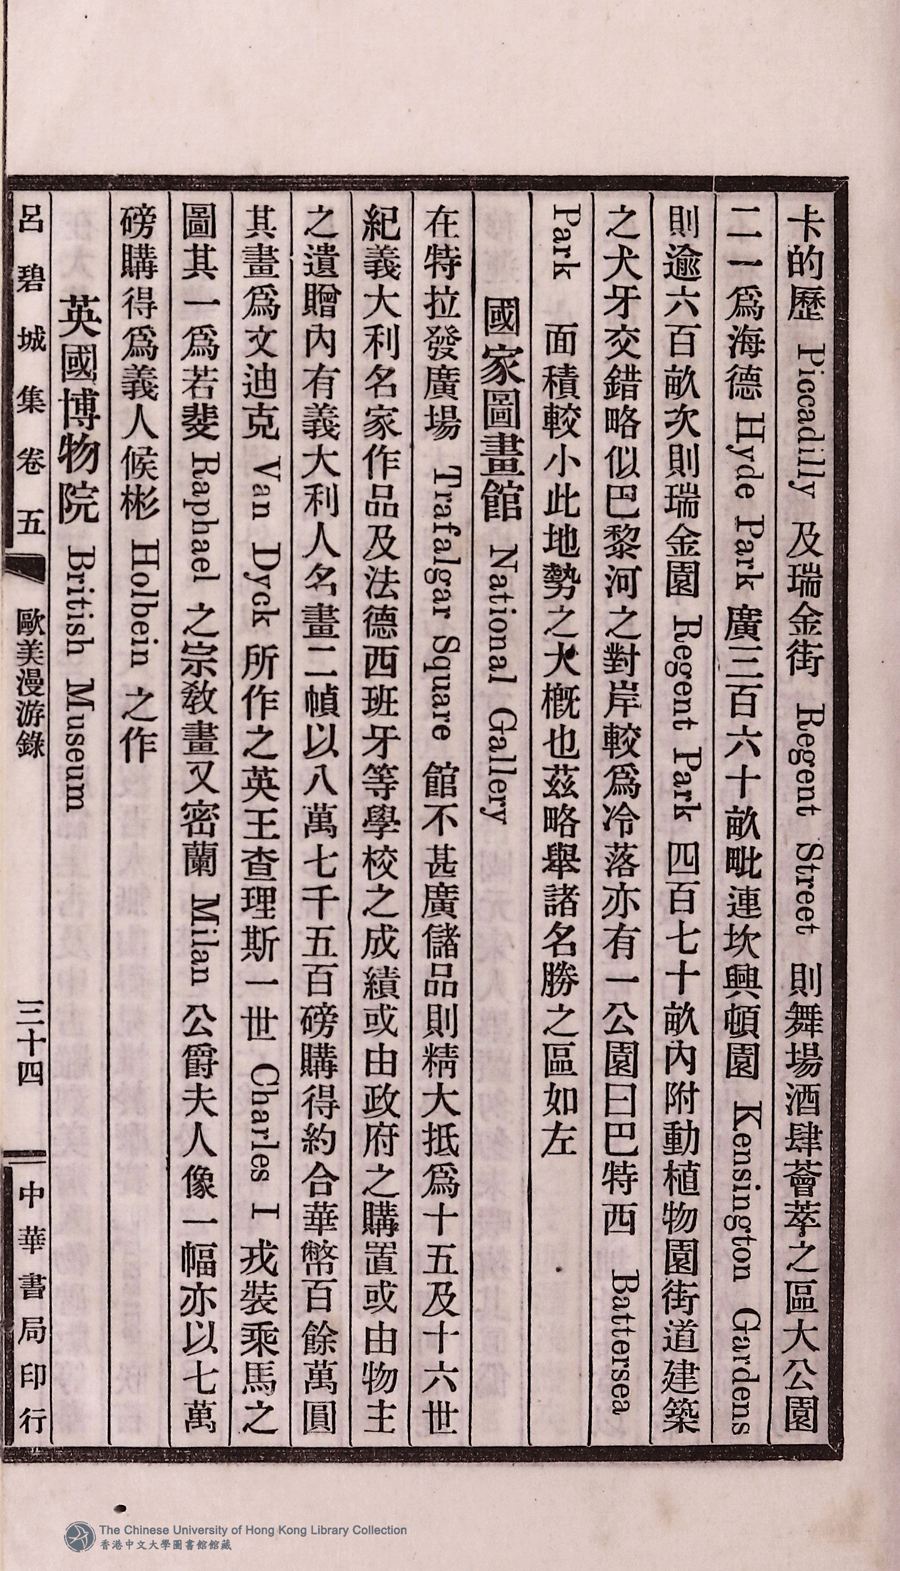 卡的歷 Piccadilly 及瑞金街 Regent Street 則舞場酒肆薈萃之區大公園
二一爲海德 Hyde Park 廣三百六十畝毗連坎興頓園 Kensington Gardens
則逾六百畝次則瑞金園 Regent Park 四百七十畝內附動植物園街道建築
之犬牙交錯略似巴黎河之對岸較爲冷落亦有一公園曰巴特西 Battersea
Park 面積較小此地勢之大槪也茲略舉諸名勝之區如左
國家圖畫館 National Gallery
在特拉發廣場 Trafalgar Square 館不甚廣儲品則精大抵爲十五及十六世
紀義大利名家作品及法德西班牙等學校之成績或由政府之購置或由物主
之遺贈內有義大利人名畫二幀以八萬七千五百磅購得約合華幣百餘萬圓
其畫爲文迪克 Van Dyck 所作之英王查理斯一世 Charles I 戎裝乘馬之
圖其一爲若斐 Raphael 之宗敎畫又密蘭 Milan 公爵夫人像一幅亦以七萬
磅購得爲義人候彬 Holbein 之作
英國博物院 British Museum
呂碧城集卷五 歐美漫游錄 三十四 中華書局印行
The Chinese University of Hong Kong Library Collection
香港中文大學圖書館館藏